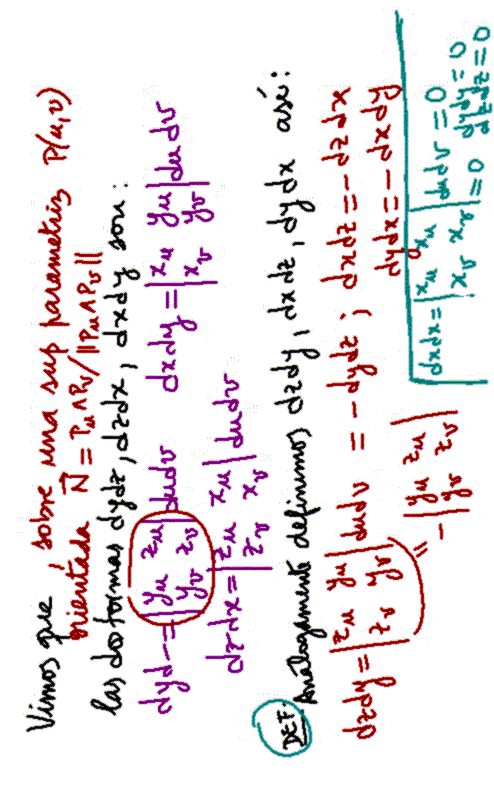 Vimos que, sobre una sup parametriz P(u,v)
orientada N⃗ = Pu ∧ Pv / ||Pu ∧ Pv||
las do formas dydz, dzdx, dxdy son:
dyd- = |yu zu; yv zv| dudv   dxdy = |xu yu; xv yv| dudv
dzdx = |zu xu; zv xv| dudv
DEF. Análogamente definimos dzdy, dxdz, dydx así:
dzdy = |zu yu; zv yv| dudv = -dydz ; dxdz = -dzdx
= - |yu zu; yv zv|   dydx = -dxdy
dxdx = |xu xu; xv xv| dudv = 0
= 0   dydy = 0
dzdz = 0